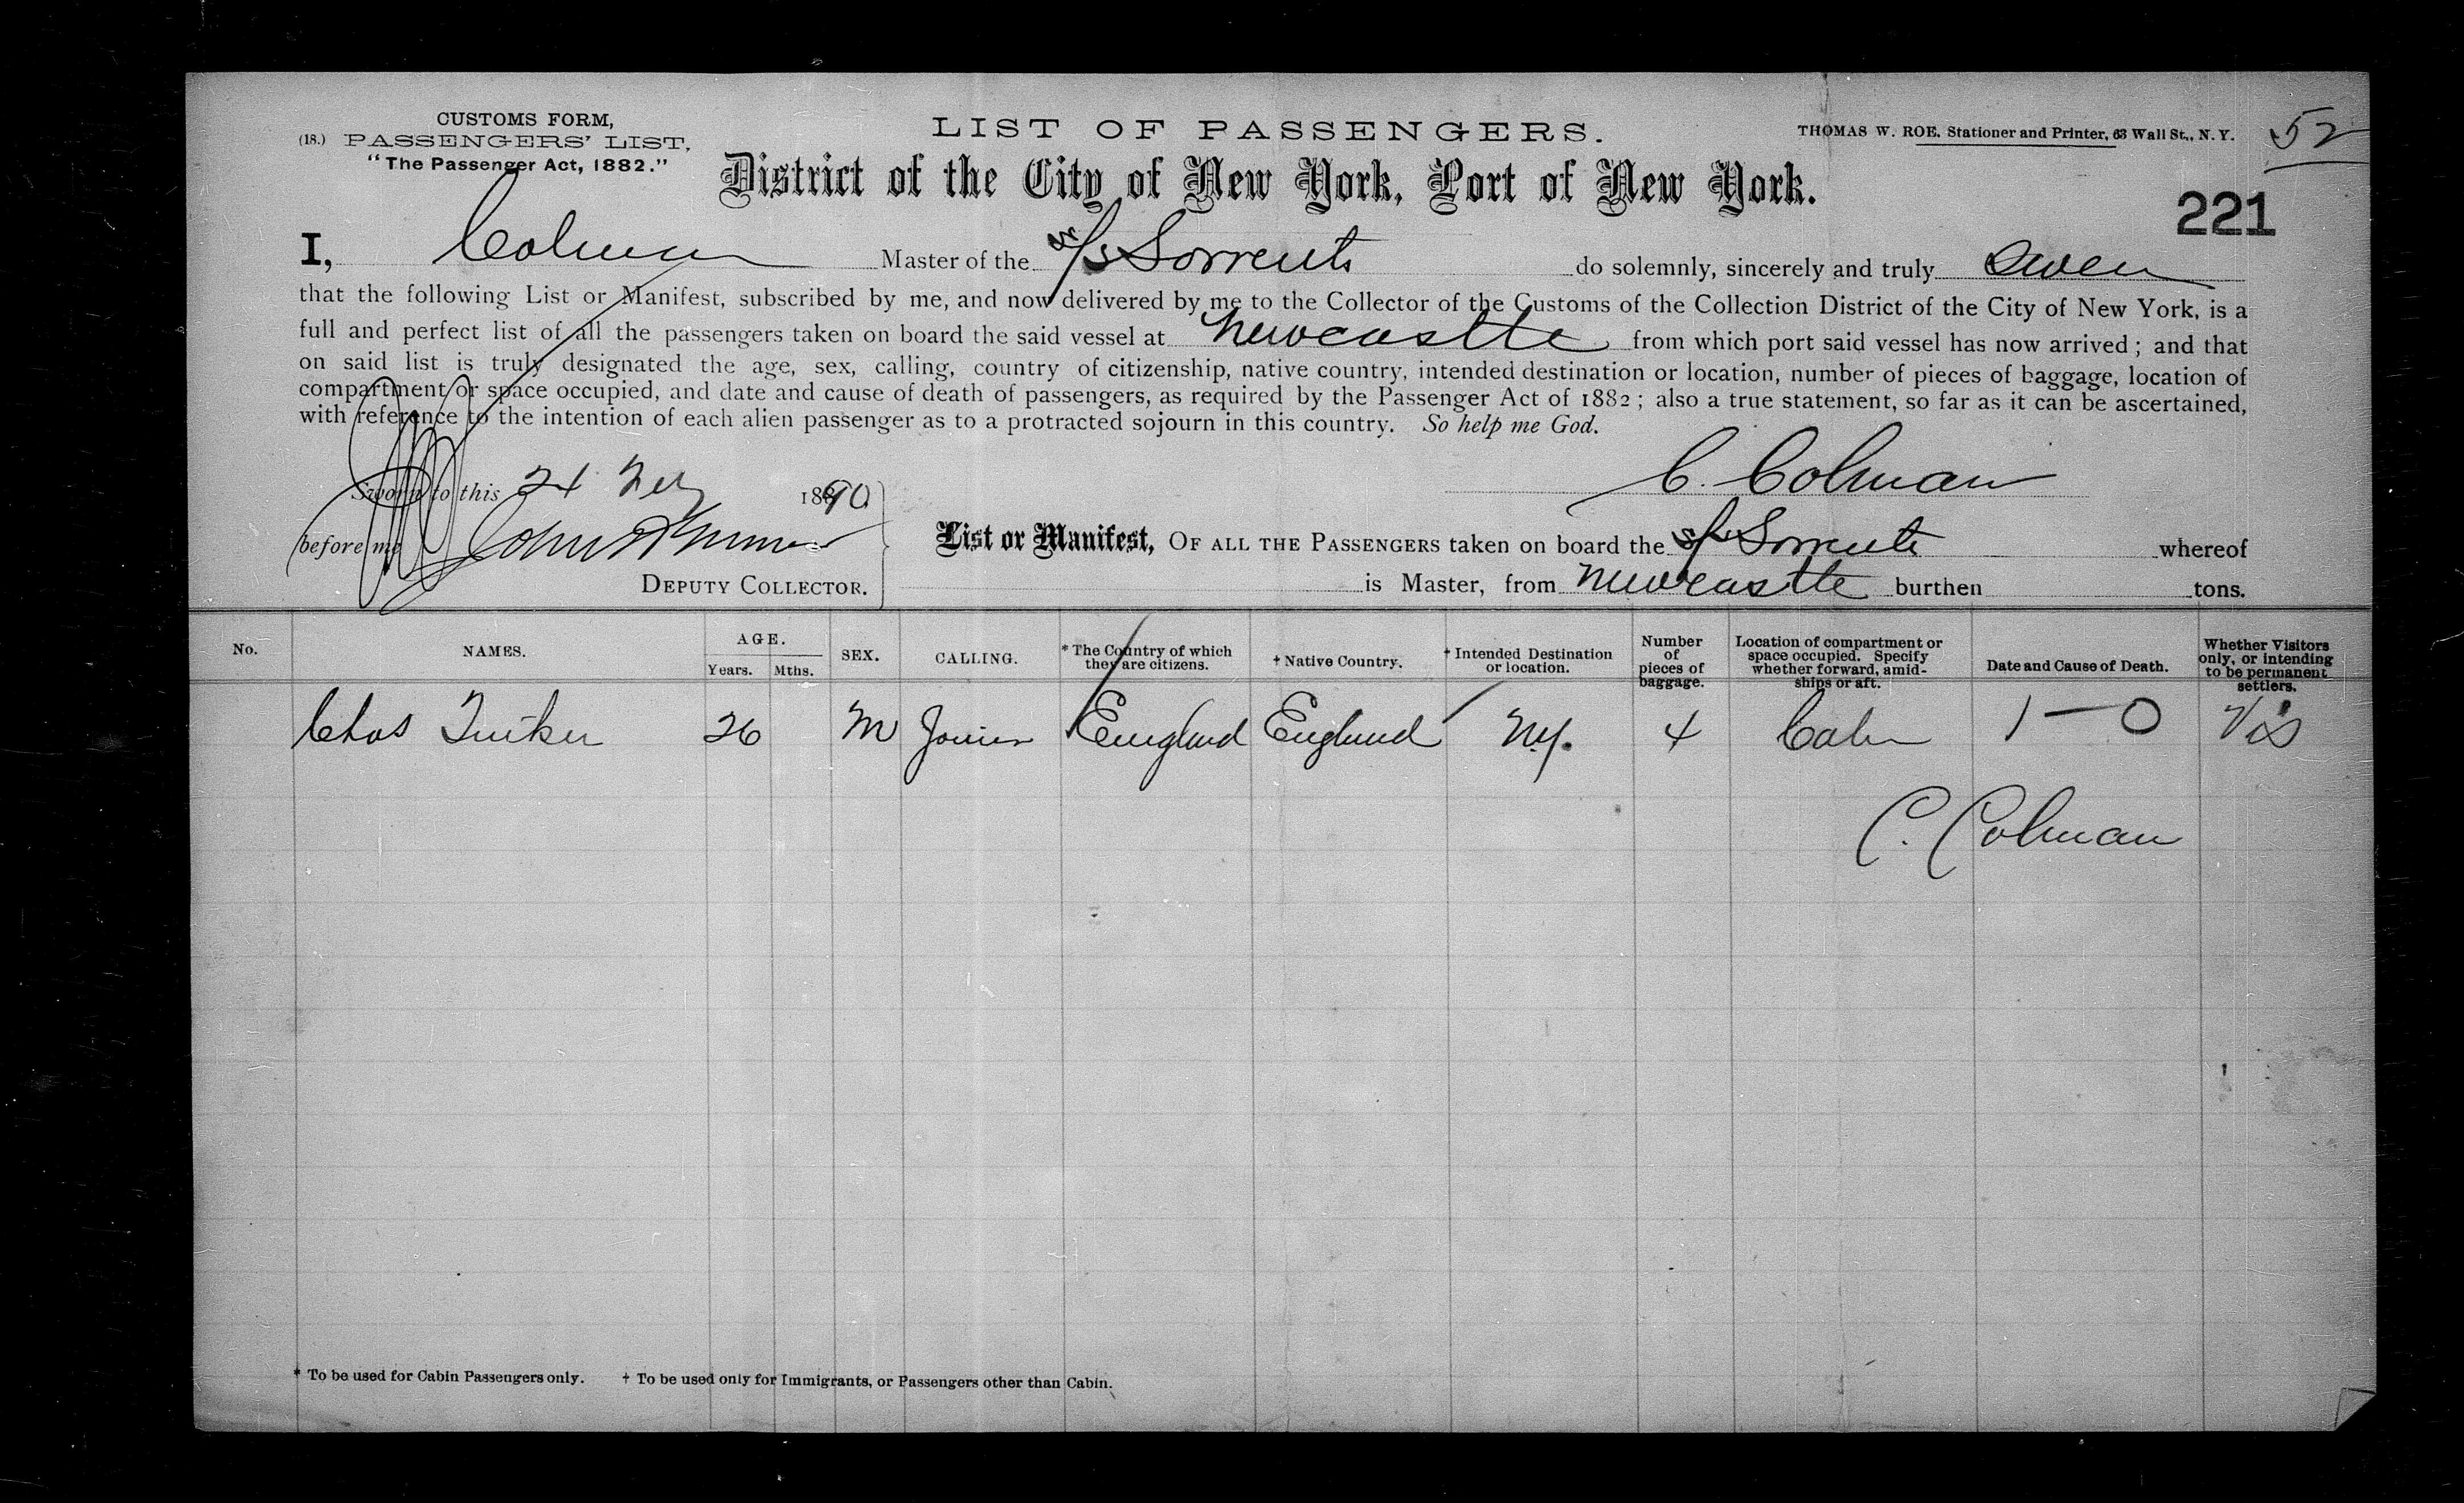 CUSTOMS FORM,
(18.) PASSENGERS' LIST,
"The Passenger Act, 1882."
LIST OF PASSENGERS.
THOMAS W. ROE, Stationer and Printer, 63 Wall St., N. Y.
52
District of the City of New York, Port of New York.
221
I, Colman Master of the S/S Sorrento do solemnly, sincerely and truly swear
that the following List or Manifest, subscribed by me, and now delivered by me to the Collector of the Customs of the Collection District of the City of New York, is a
full and perfect list of all the passengers taken on board the said vessel at Newcastle from which port said vessel has now arrived; and that
on said list is truly designated the age, sex, calling, country of citizenship, native country, intended destination or location, number of pieces of baggage, location of
compartment or space occupied, and date and cause of death of passengers, as required by the Passenger Act of 1882; also a true statement, so far as it can be ascertained,
with reference to the intention of each alien passenger as to a protracted sojourn in this country. So help me God.
C. Colman
Sworn to this 24 Feby 1890
before me John
DEPUTY COLLECTOR.
List or Manifest, OF ALL THE PASSENGERS taken on board the S/S Sorrento whereof
is Master, from Newcastle burthen tons.
No. NAMES. AGE. Years. Mths. SEX. CALLING. * The Country of which they are citizens. † Native Country. † Intended Destination or location. Number of pieces of baggage. Location of compartment or space occupied. Specify whether forward, amidships or aft. Date and Cause of Death. Whether Visitors only, or intending to be permanent settlers.
Chas 26 M Joiner England England N.Y. 4 Cabin 1 — 0 Vis
C. Colman
* To be used for Cabin Passengers only. † To be used only for Immigrants, or Passengers other than Cabin.